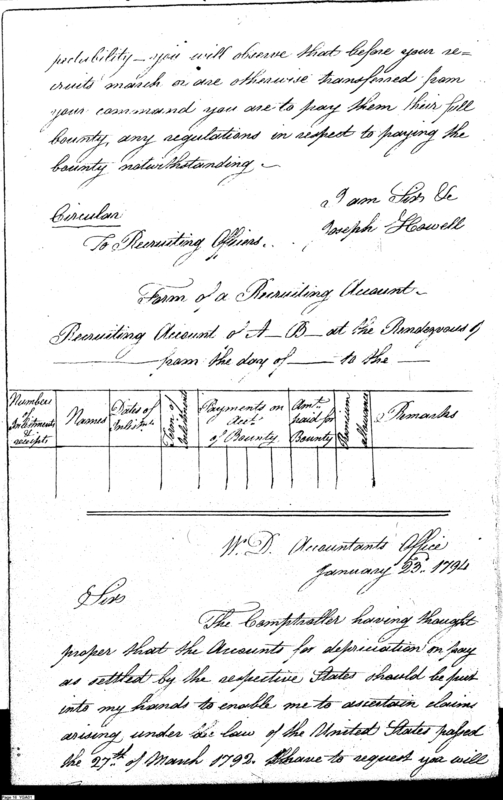 probability — you will observe that before your re=
cruits march or are otherwise transferred from
your command you are to pay them their full
bounty, any regulations in respect to paying the
bounty notwithstanding. —
I am Sir &c
Circular
Joseph Howell
To Recruiting Officers..
Form of a Recruiting Account.
Recruiting Account of A— B— at the Rendezvous of
from the day of — to the —
Numbers of Inlistments & receipts
Names
Dates of Inlistmts.
Term of Inlistments
Payments on Acct. of Bounty
Amt. paid for Bounty
Premium allowance
Remarks
W. D. Accountants Office
January 23d. 1794
Sir
The Comptroller having thought
proper that the Accounts for depreciation on pay
as settled by the respective States should be put
into my hands to enable me to ascertain claims
arising under the law of the United States passed
the 27th of March 1792. I have to request you will